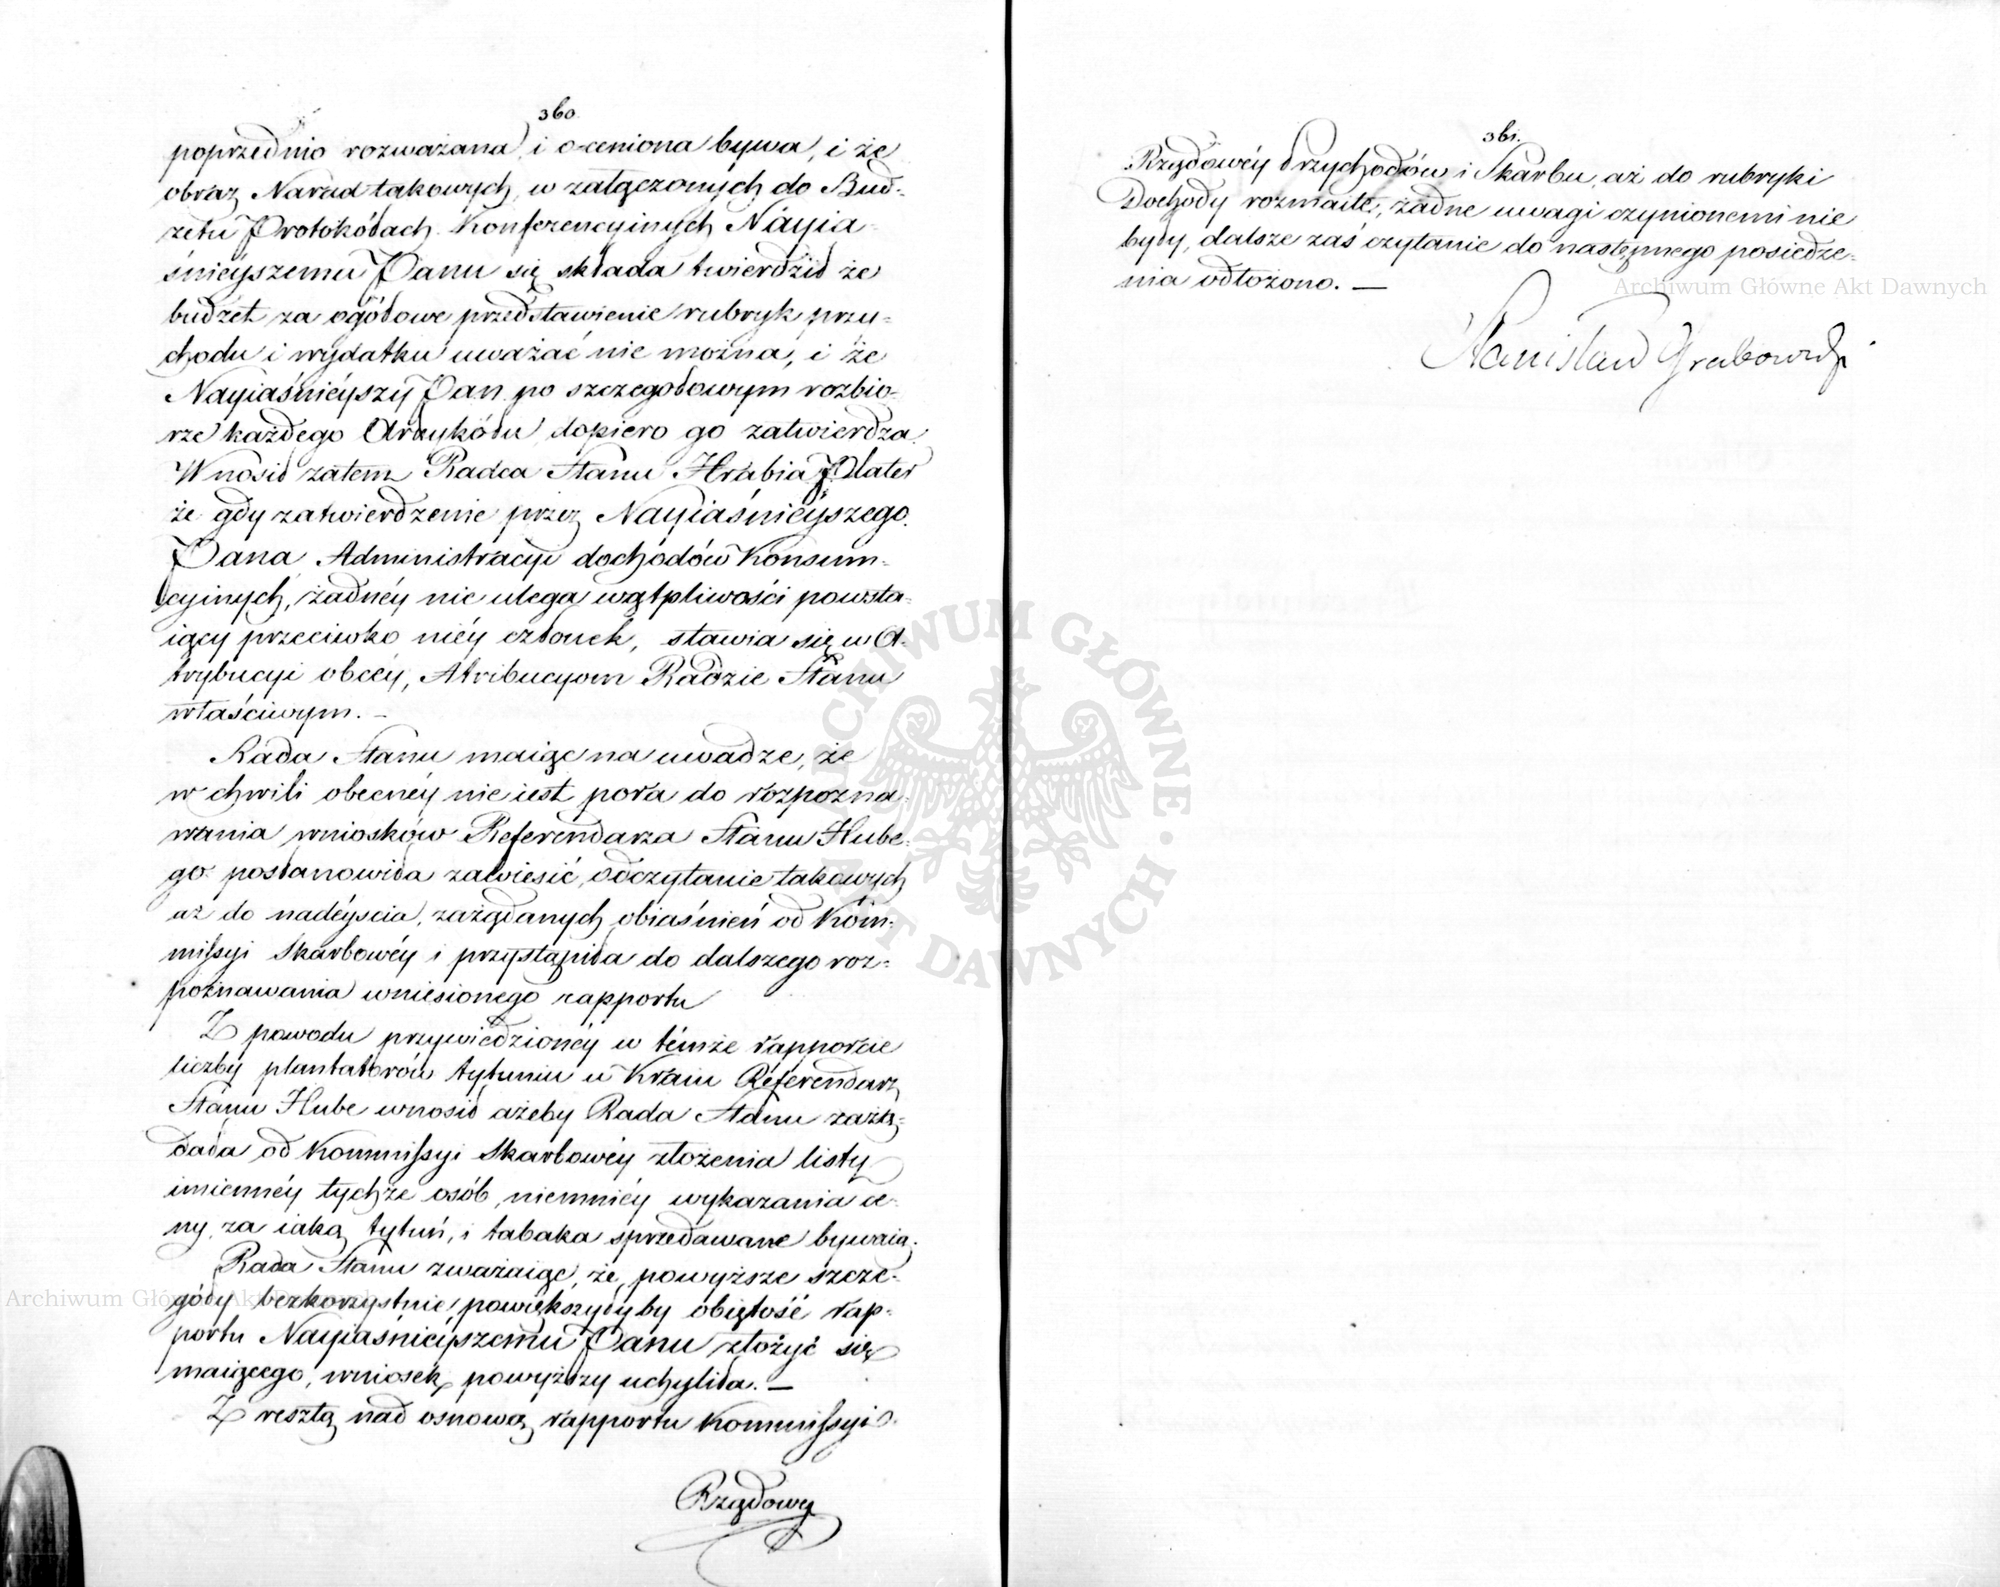 360
poprzednio rozważana i oceniona bywa, i że
obraz Narad takowych w załączonych do Bud-
zetu Protokółach Konferencyinych Nayia-
śnieyszemu Panu się składa twierdził że
budżet za ogółowe przedstawienie rubryk przy-
chodu i wydatku uważać nie można, i że
Nayiaśnieyszy Pan po szczegołowym rozbio-
rze każdego Artykółu dopiero go zatwierdza.
Wnosił zatem Radca Stanu Hrabia Plater
że gdy zatwierdzenie przez Nayiaśnieyszego
Pana Administracyi dochodów Konsum-
cyinych, żadnéy nie ulega wątpliwości powsta-
iący przeciwko niéy członek, stawia się w A-
trybucyi obcéy, Atribucyom Radzie Stanu
właściwym. –
Rada Stanu maiąc na uwadze, że
w chwili obecnéy nie iest pora do rozpozna-
wania wniosków Referendarza Stanu Hube-
go postanowiła zawiesić odczytanie takowych
aż do nadéyscia zażądanych obiaśnień od Kom-
missyi Skarbowéy i przystąpiła do dalszego roz-
poznawania wniesionego rapportu
Z powodu przywiedzionéy w témże rapporcie
liczby plantatorów tytuniu w Kraiu Referendarz
Stanu Hube wnosił ażeby Rada Stanu zażą-
dała od Kommissyi Skarbowéy złożenia listy
imiennéy tychże osób, niemniéy wykazania ce-
ny, za iaką tytuń, i tabaka sprzedawane bywaią.
Rada Stanu zważaiąc, że powyższe szcze-
góły bezkorzystnie powiększyłyby obiętość rap-
portu Nayiaśnieyszemu Panu złożyć się
maiącego, wniosek powyższy uchyliła. –
Z resztą nad osnową rapportu Kommissyi
Rządowey
361.
Rządowéy Przychodów i Skarbu, aż do rubryki
Dochody rozmaite, żadne uwagi czynionemi nie
były, dalsze zaś czytanie do następnego posiedze-
nia odłożono. –
Stanisław Grabowski
Archiwum Główne Akt Dawnych
ARCHIWUM GŁÓWNE AKT DAWNYCH
Archiwum Główne Akt Dawnych